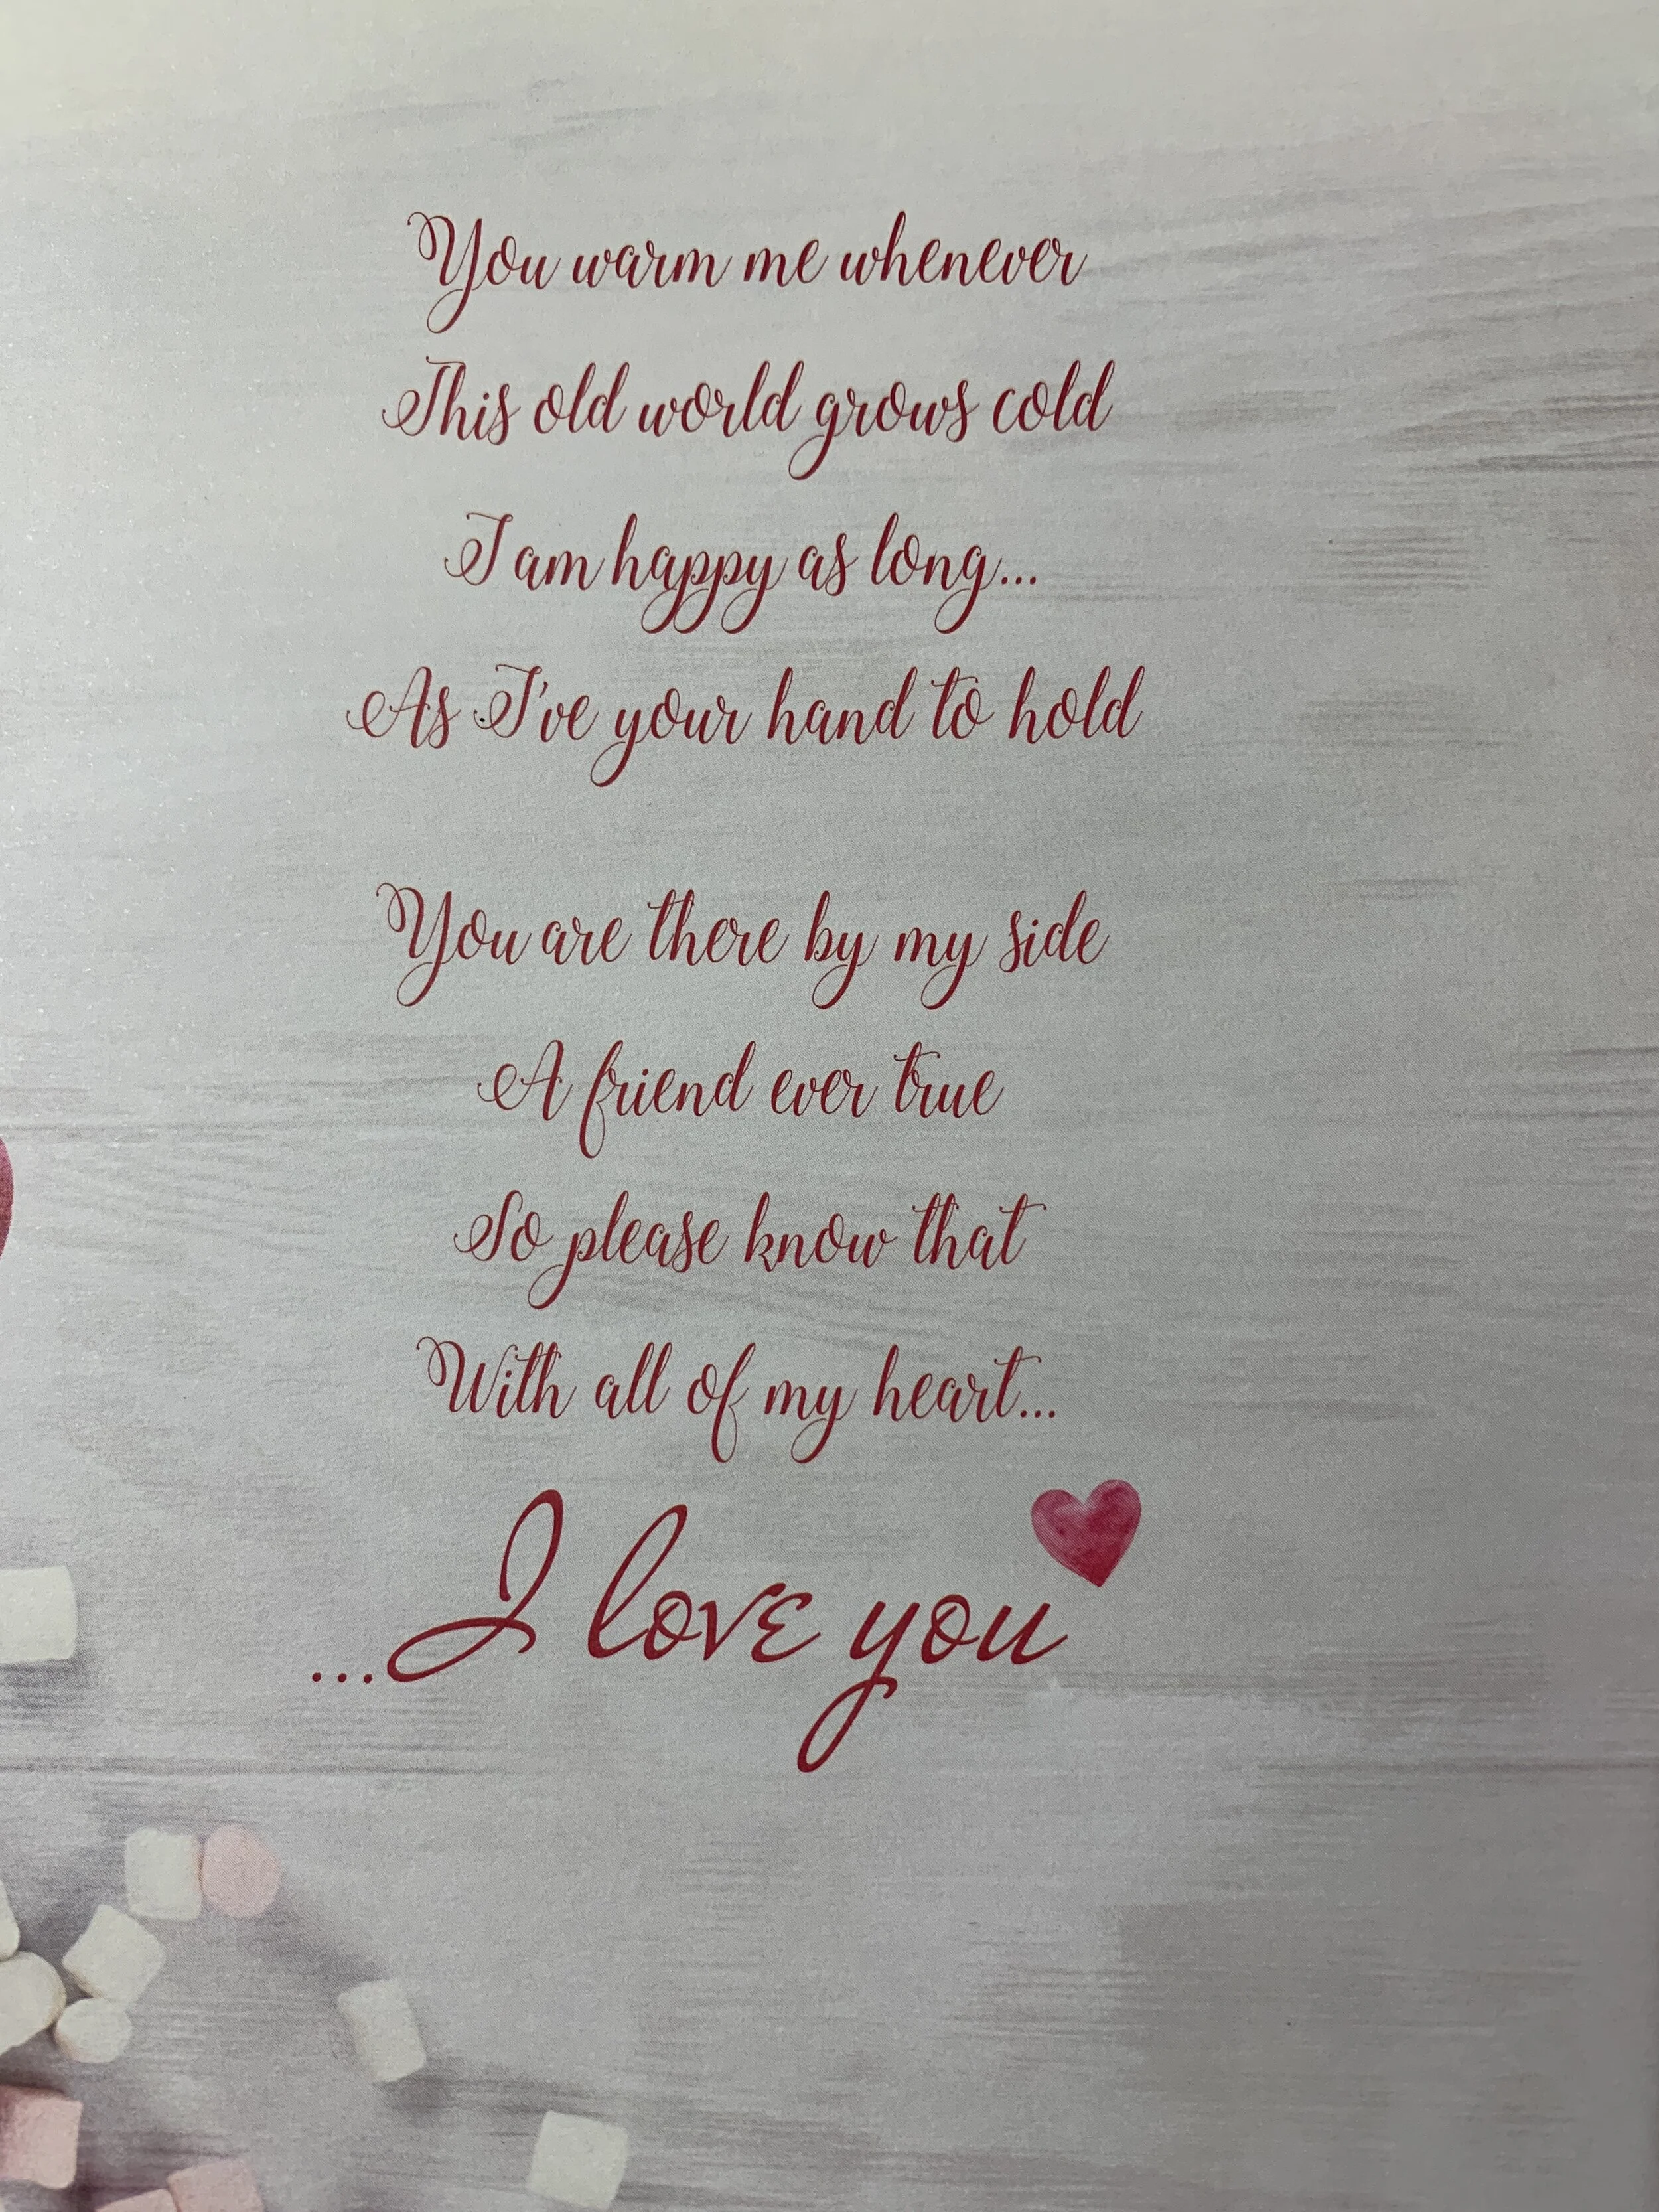 You warm me whenever
This old world grows cold
I am happy as long...
As I've your hand to hold
You are there by my side
A friend ever true
So please know that
With all of my heart...
...I love you